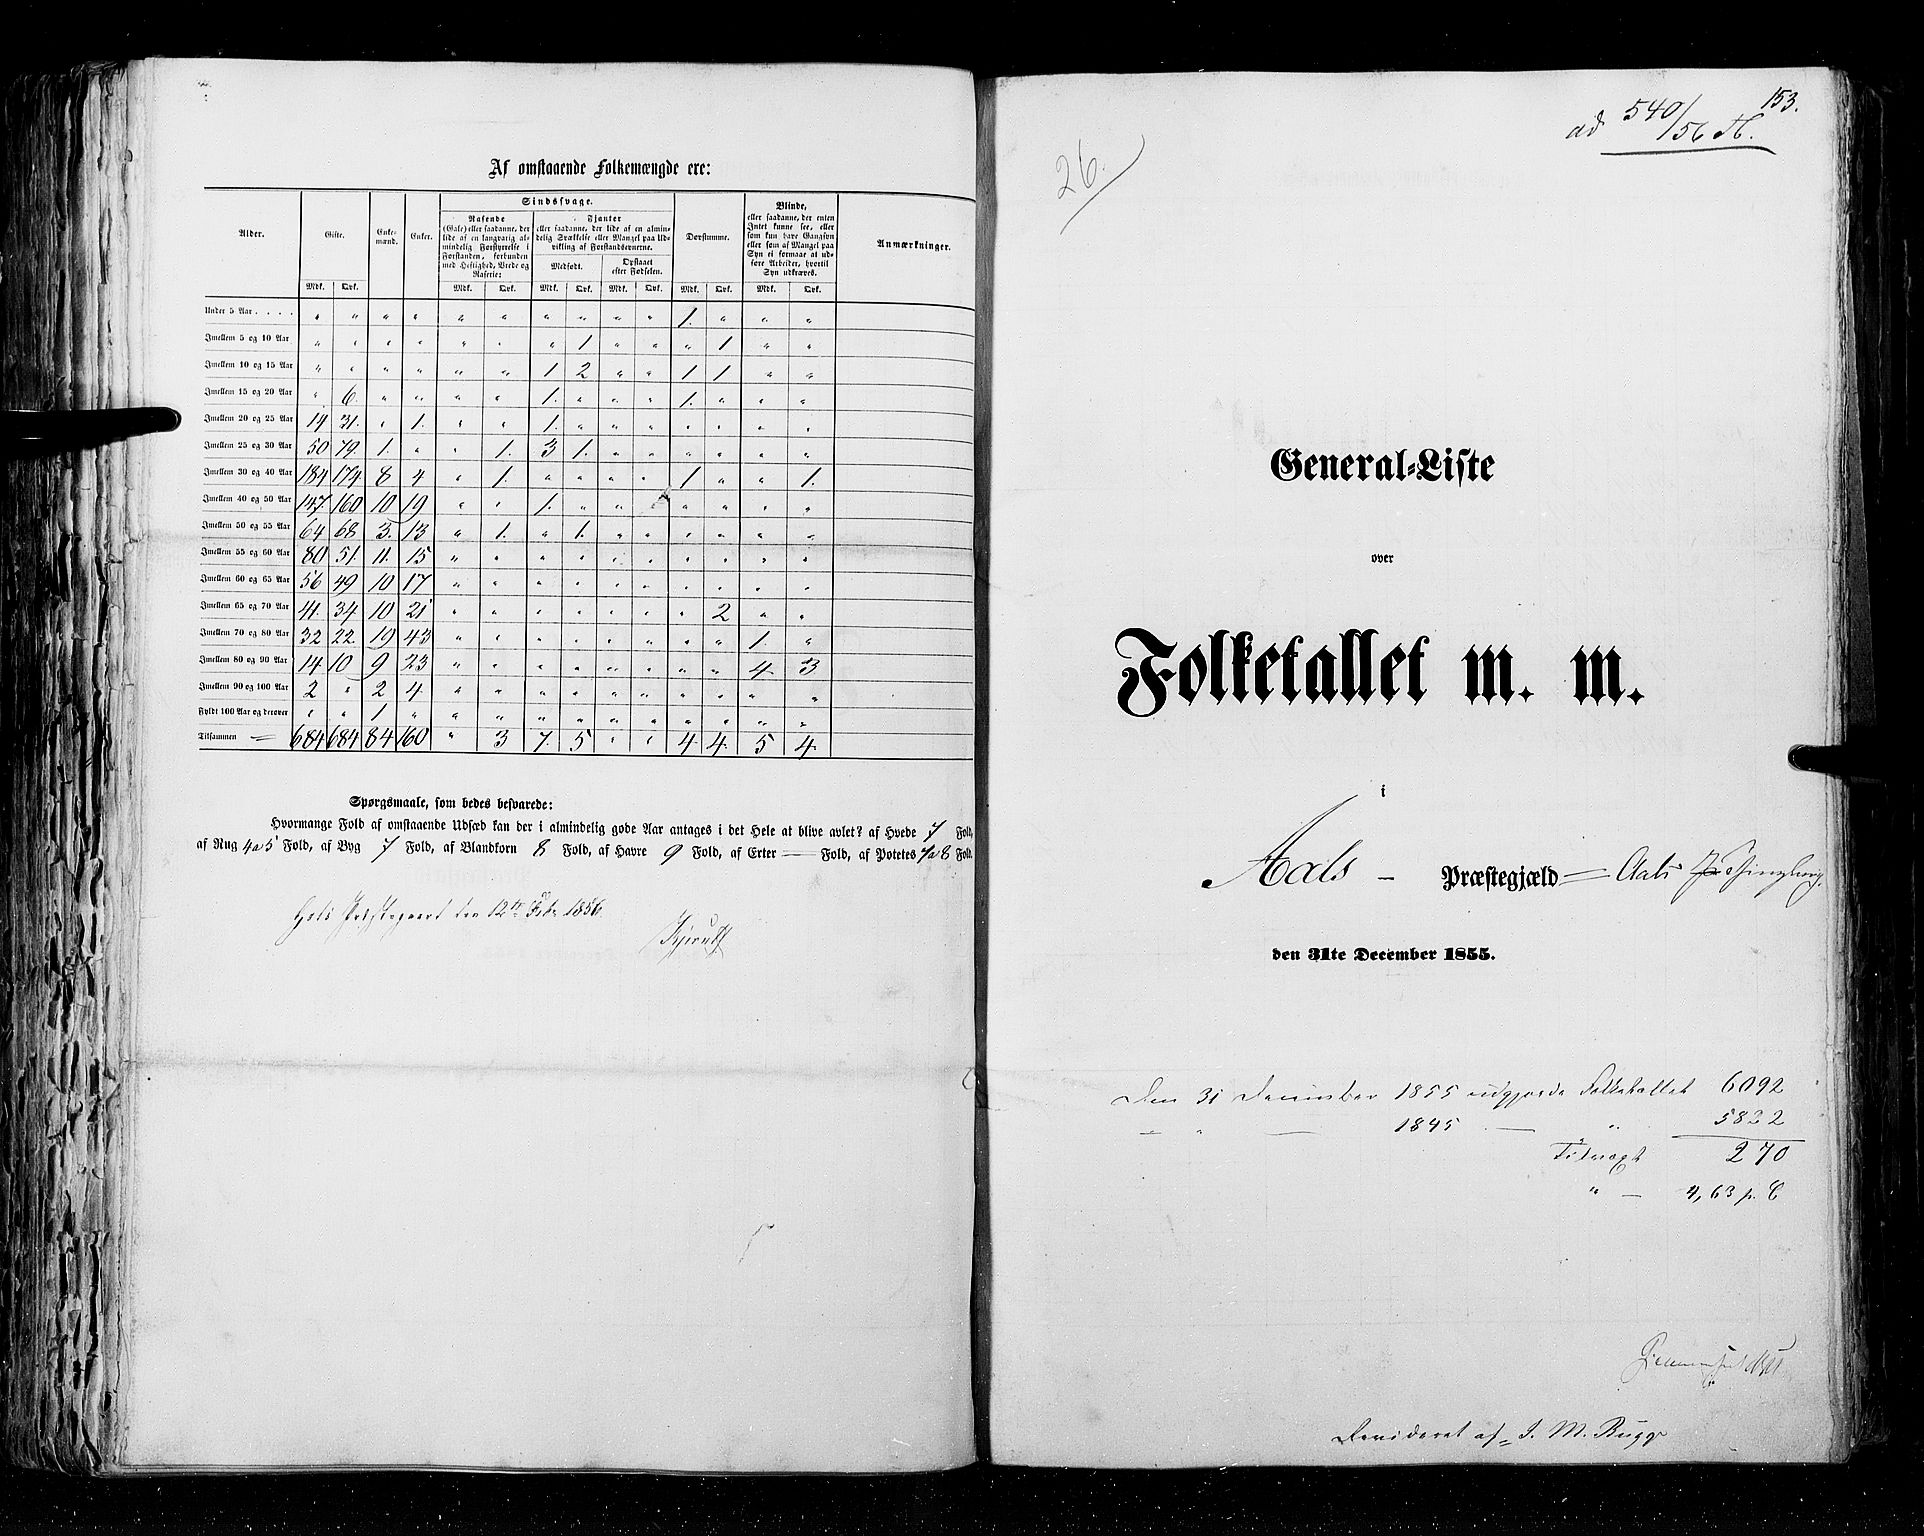 Af omstaaende Folkemængde ere:
Alder. Gifte. Enke-mænd. Enker. Sindssvage. Døvstumme. Blinde, Anmærkninger.
Rasende (Gale) eller saadanne, der lide af en langvarig almindelig Forstyrrelse i Forstanden, forbunden med Heftighed, Vrede og Raserie:
Fjanter eller saadanne, der lide af en almindelig Svækkelse eller Mangel paa Udvikling af Forstandsevnerne.
Medfødt. Opstaaet efter Fødselen.
eller saadanne, der enten Intet kunne see, eller som kun have Gangsyn eller som af Mangel paa Syn ei formaae at udføre Arbeider, hvortil Syn udkræves.
Mdk. Qvk. Mdk. Qvk. Mdk. Qvk. Mdk. Qvk. Mdk. Qvk. Mdk. Qvk.
Under 5 Aar . . . . " " " " " " " " " " 1. " " "
Imellem 5 og 10 Aar " " " " " " " 1 " " " 1 " "
Imellem 10 og 15 Aar " " " " " " 1 2 " " 1 1 " "
Imellem 15 og 20 Aar " 6. " " " " 1. " " " 1. " " "
Imellem 20 og 25 Aar 19 31. " 1. " " 1. " " " " " " "
Imellem 25 og 30 Aar 50 79. 1. " " 1. 3 1. " " " " " "
Imellem 30 og 40 Aar 184 174 8 4 " 1. " " " " 1 " " 1.
Imellem 40 og 50 Aar 147. 160 10 19 " " 1. " " " " " " "
Imellem 50 og 55 Aar 64 68 3. 13 " 1. " 1. " " " " " "
Imellem 55 og 60 Aar 80 51. 11. 15 " " " " " " " " " "
Imellem 60 og 65 Aar 56 49 10 17 " " " " " " " " " "
Imellem 65 og 70 Aar 41. 34 10 21 " " " " " " " 2 " "
Imellem 70 og 80 Aar 32 22 19 43 " " " " " " " " 1. "
Imellem 80 og 90 Aar 14 10 9 23 " " " " " " " " 4 3
Imellem 90 og 100 Aar 2 " 2 4. " " " " " " " " " "
Fyldt 100 Aar og derover " " 1 " " " " " " " " " " "
Tilsammen = 684 684 84 160 " 3 7. 5 " " 4. 4. 5 4.
Spørgsmaale, som bedes besvarede:
Hvormange Fold af omstaaende Udsæd kan der i almindelig gode Aar antages i det Hele at blive avlet? af Hvede 7 Fold,
af Rug 4 a 5 Fold, af Byg 7 Fold, af Blandkorn 8 Fold, af Havre 9 Fold, af Erter — Fold, af Potetes 7 a 8 Fold.
Hols Præstegaard den 12te Febr 1856.
153.
ad 540/56 A.
26.
General-Liste
over
Folketallet m. m.
i
Aals - Præstegjæld = Aals
den 31te December 1855.
Den 31 December 1855 udgjorde Folketallet 6092
— " — 1845 — " 5822
Tilvæxt 270
" — 4,63 p. C
Revideret af J. M. Bugge